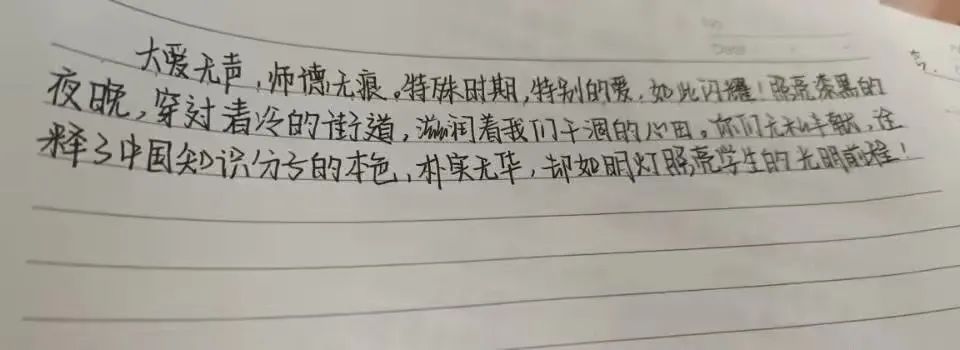 大爱无声,师德无痕。特殊时期,特别的爱,如此闪耀!照亮漆黑的
夜晚,穿过清冷的街道,滋润着我们干涸的心田。你们无私奉献,诠
释了中国知识分子的本色,朴实无华,却如明灯照亮学生的光明前程!